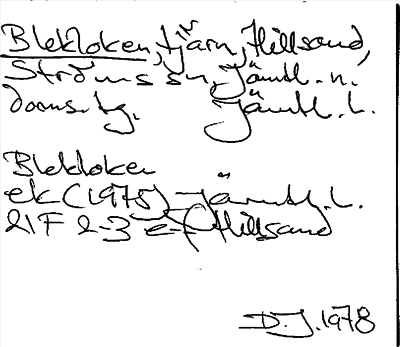 Blekloken, tjärn, Hillsand,
Ströms sn, Jämtl. n.
doms. tg. Jämtl. L.
Blekloken
ek (1975) Jämtl. L.
21F 2-3 e-f Hillsand
D.J. 1978